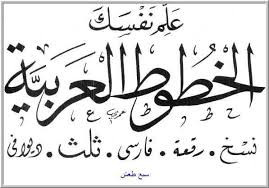 علّم نفسك
الخطوط العربية
نسخ . رقعة . فارسى . ثلث . ديوانى